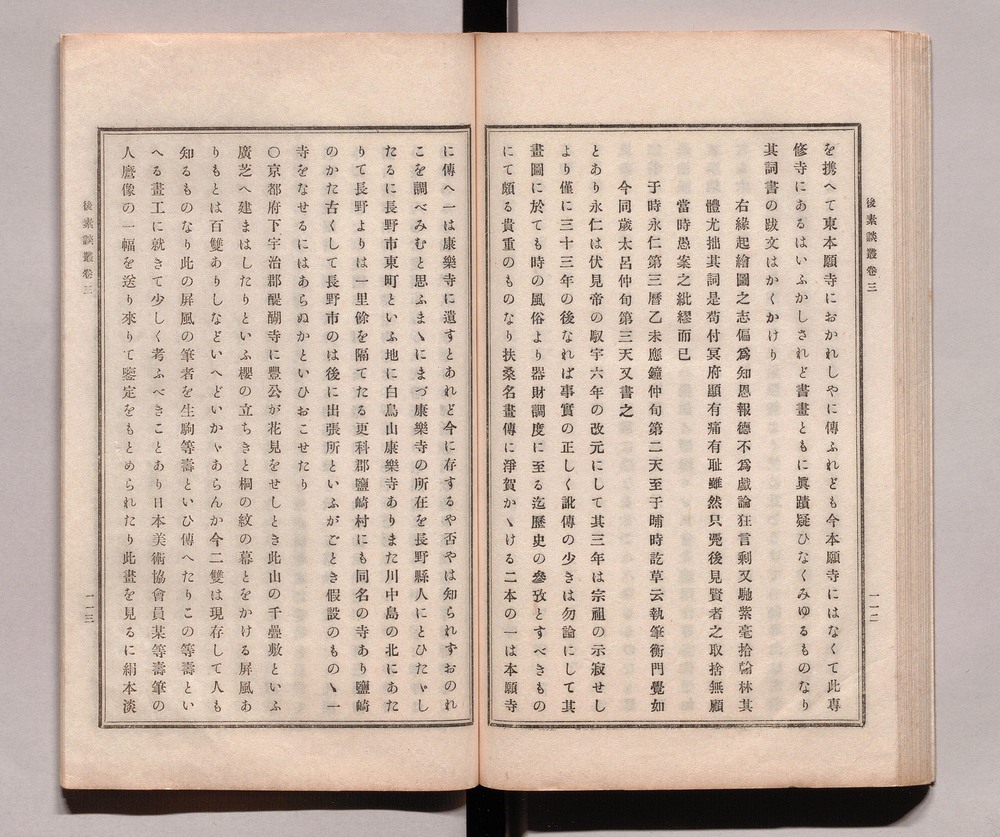 後素談叢卷三
を携へて東本願寺におかれしやに傳ふれども今本願寺にはなくて此専
修寺にあるはいふかしされど書畫ともに眞蹟疑ひなくみゆるものなり
其詞書の跋文はかくかけり
右緣起繪圖之志偏爲知恩報德不爲戲論狂言剩又馳紫毫拾翰林其
體尤拙其詞是苟付冥府顯有痛有耻雖然只㷟後見賢者之取捨無顧
當時愚案之紕繆而已
于時永仁第三曆乙未應鐘仲旬第二天至于晡時訖草云執筆衡門覺如
今同歲太呂仲旬第三天又書之
とあり永仁は伏見帝の馭宇六年の改元にして其三年は宗祖の示寂せし
より僅に三十三年の後なれば事實の正しく訛傳の少きは勿論にして其
畫圖に於ても時の風俗より器財調度に至る迄歷史の參攷とすべきもの
にて頗る貴重のものなり扶桑名畫傳に淨賀かゝける二本の一は本願寺
一一二
に傳へ一は康樂寺に遣すとあれど今に存するや否やは知られずおのれ
こを調べみむと思ふまゝにまづ康樂寺の所在を長野縣人にとひたゞし
たるに長野市東町といふ地に白鳥山康樂寺ありまた川中島の北にあた
りて長野よりは一里餘を隔てたる更科郡鹽崎村にも同名の寺あり鹽崎
のかた古くして長野市のは後に出張所といふがごとき假設のものゝ一
寺をなせるにはあらぬかといひおこせたり
〇京都府下宇治郡醍醐寺に豐公が花見をせしとき此山の千疊敷といふ
廣芝へ建まはしたりといふ櫻の立ちきと桐の紋の幕とをかける屏風あ
りもとは百雙ありしなどいへどいかゞあらんか今二雙は現存して人も
知るものなり此の屏風の筆者を生駒等壽といひ傳へたりこの等壽とい
へる畫工に就きて少しく考ふべきことあり日本美術協會員某等壽筆の
人麿像の一幅を送り來りて鑒定をもとめられたり此畫を見るに絹本淡
後素談叢卷三
一一三